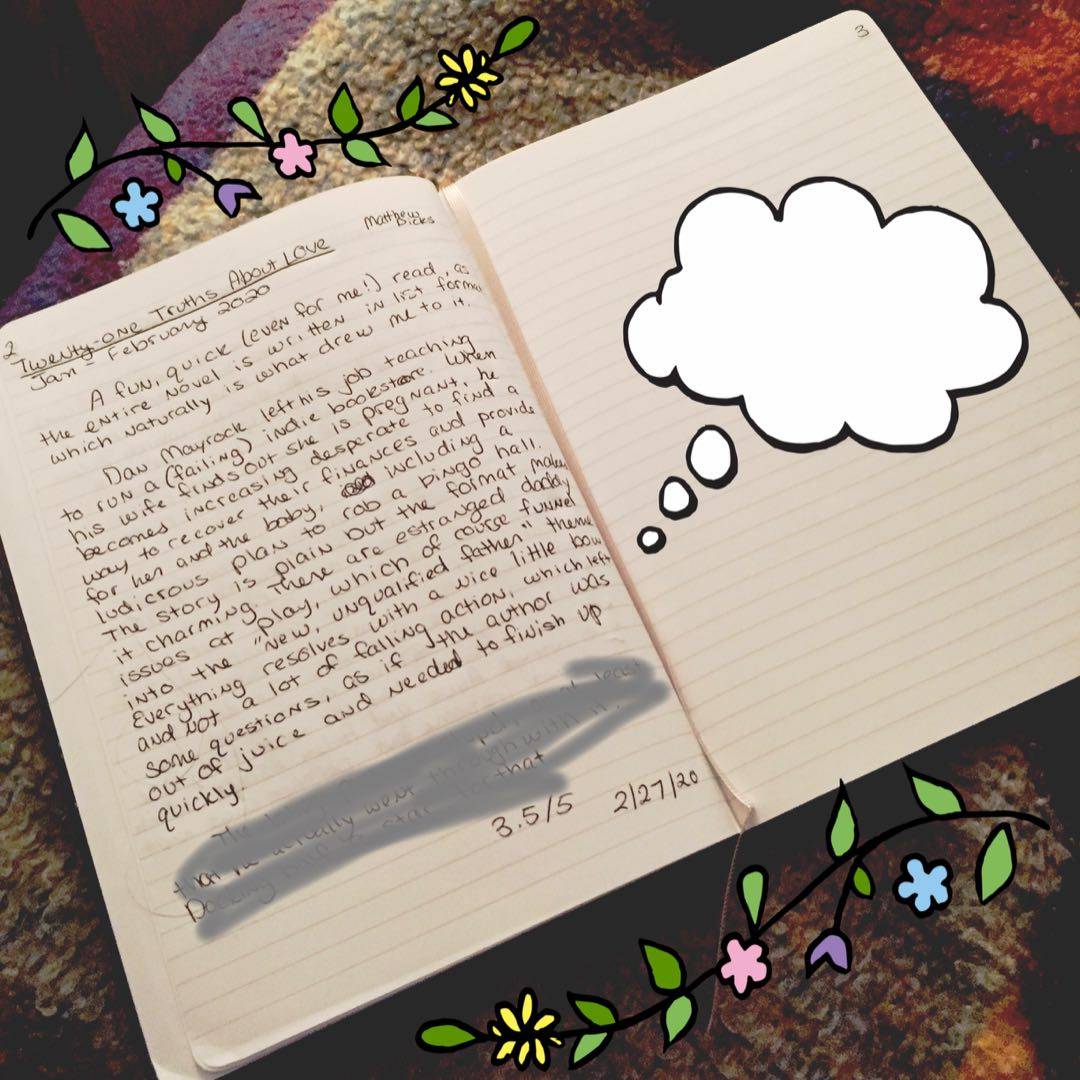 2
3
Matthew
Dicks
Twenty-one Truths About Love
Jan - February 2020
A fun, quick (even for me!) read, as
the entire novel is written in list format
which naturally is what drew me to it.
Dan Mayrock left his job teaching
to run a (failing) indie bookstore. When
his wife finds out she is pregnant, he
becomes increasing desperate to find a
way to recover their finances and provide
for her and the baby, including a
ludicrous plan to rob a bingo hall.
The story is plain but the format makes
it charming. There are estranged daddy
issues at play, which of course funnel
into the "new, unqualified father" theme
Everything resolves with a nice little bow
and not a lot of falling action, which left
some questions, as if the author was
out of juice and needed to finish up
quickly.
The least
that he actually went through with it.
star for that
3.5/5 2/27/20